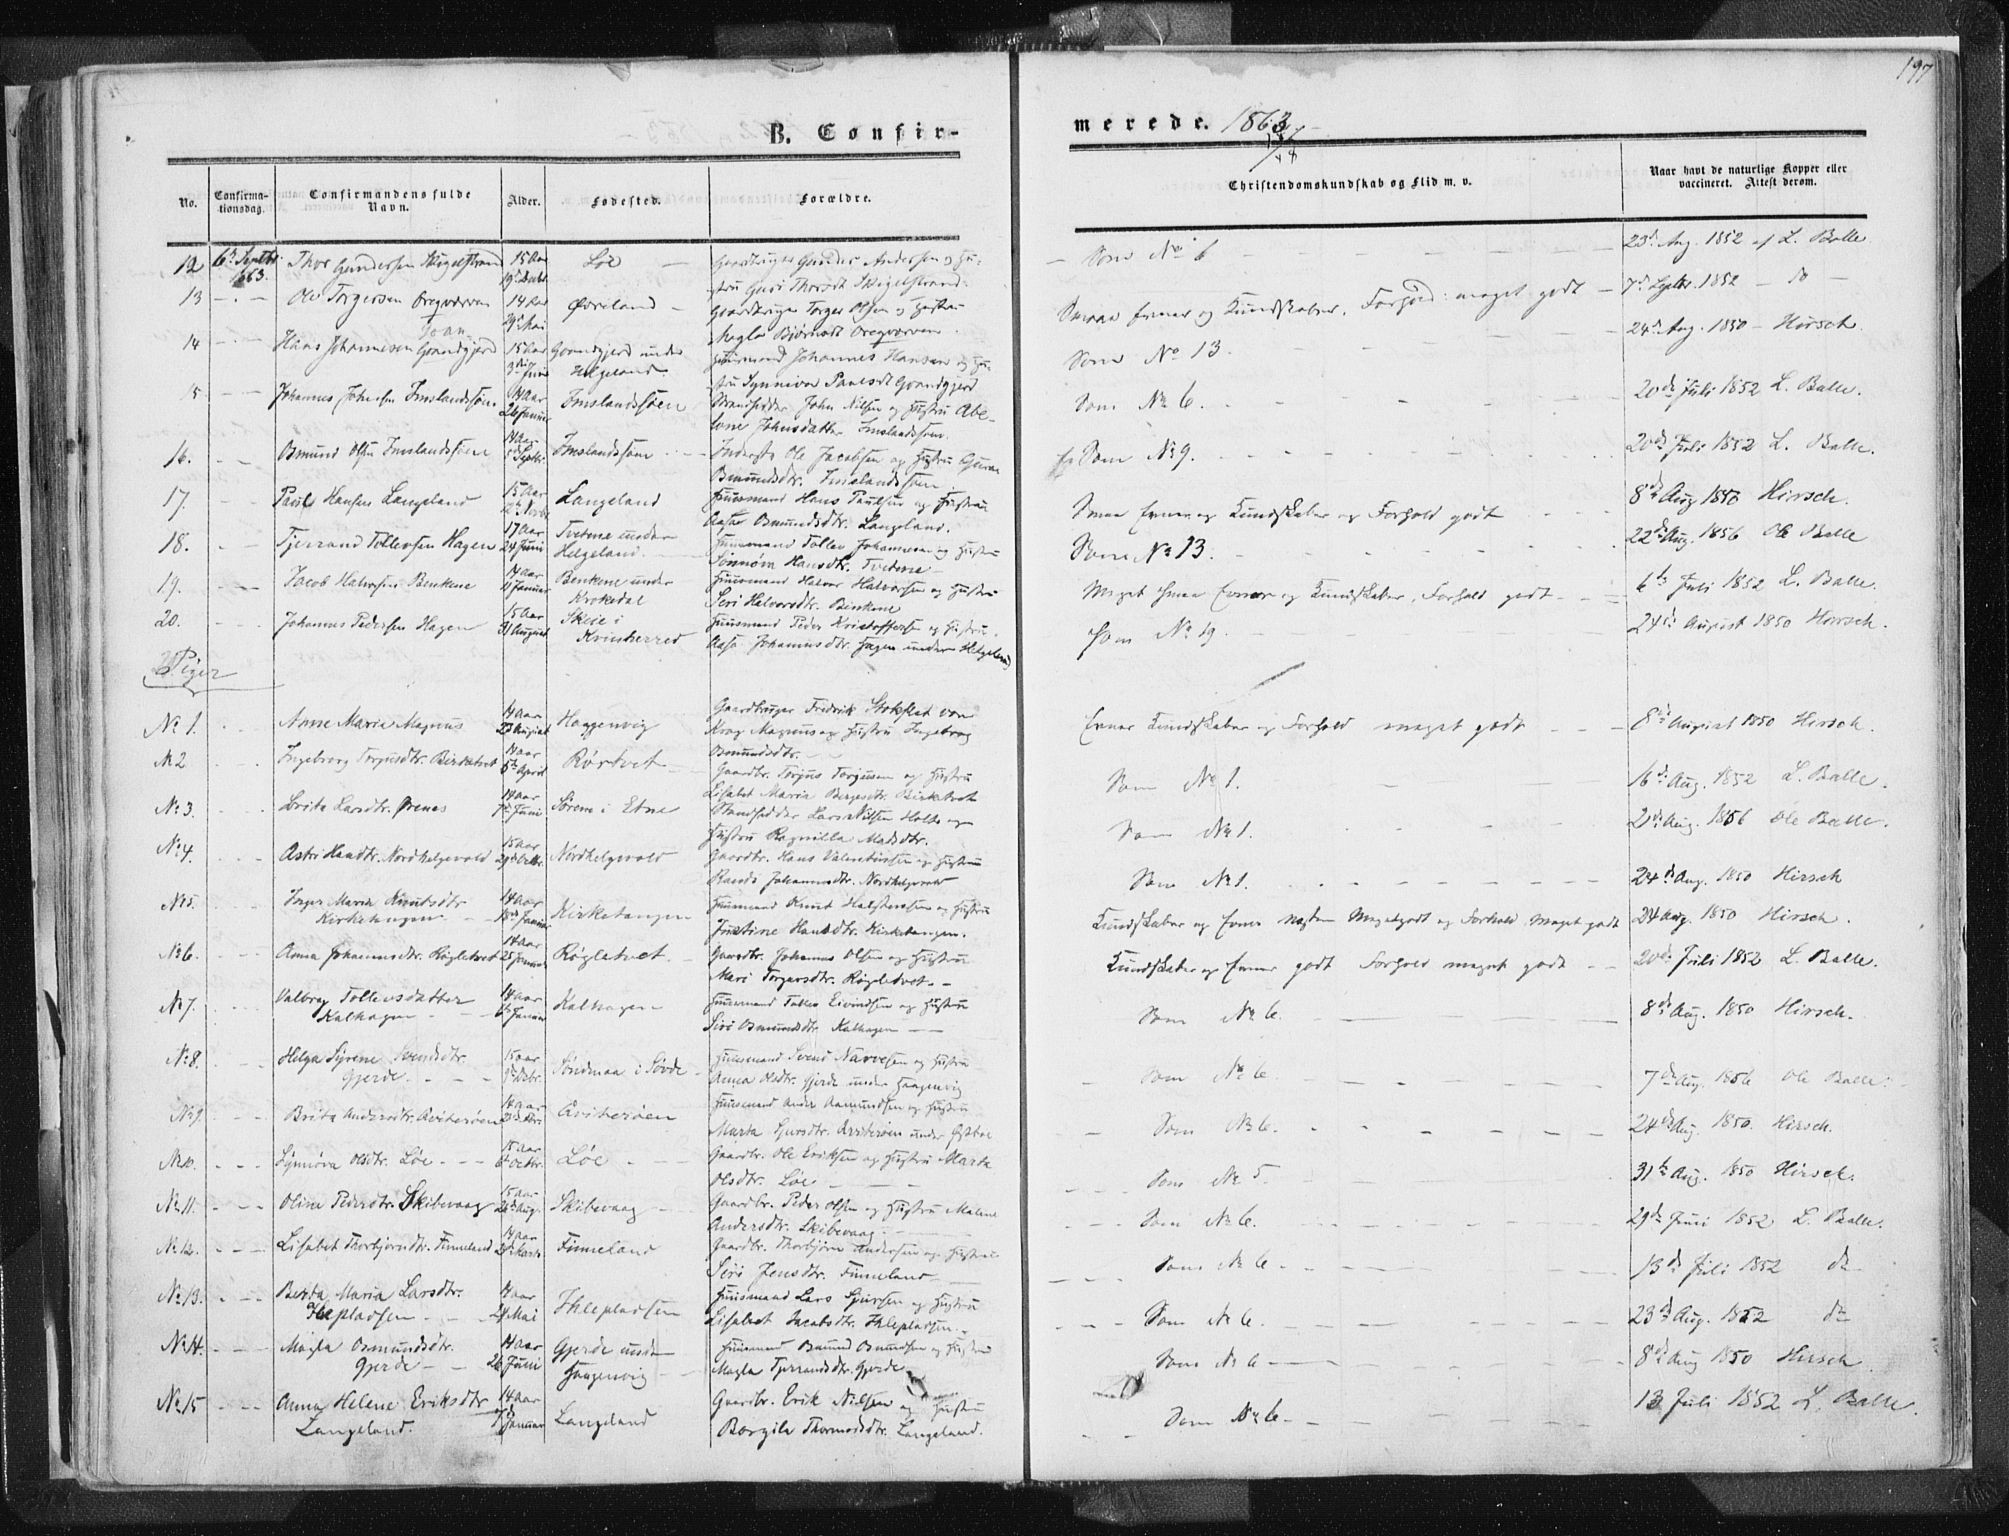 197
B. Confir-
merede. 1863
No.
Confirma-
tionsdag.
Confirmandens fulde
Navn.
Alder.
Fødested.
Forældre.
Christendomskundskab og Flid m. v.
Naar havt de naturlige Kopper eller
vaccineret. Attest derom.
12 6te Septbr. 1863. Thor Gundersen 15 Aar Løe Gaardbruger Gunder Andersen og Hu-
stru Guri Thorsdt. Som No 6 23de Aug. 1852 af L. Balle
13 Ole Torgersen 14 Aar Øvreland Gaardbruger Torger Olsen og Hustru
Magla Bjørnsdt. Smaa Evner og Kundskaber, Forhold: meget godt 7de Septbr. 1852 do
14 Hans Johannesen 15 Aar 3die Juni under Helgeland. Huusmand Johannes Hansen og Hu-
stru Synneva Paulsdt. Som No 13. 24de Aug. 1850 Hirsch.
15 Johannes Johnsen Imslandssøen 14 Aar 26 Januar Imslandssøen Strandsidder John Nilsen og Hustru Abe-
lone Johnsdatter Imslandssøen. Som No 6. 20de Juli 1852 L. Balle.
16. Osmund Olsen Imslandssøen 14 Aar Septbr. Imslandssøen Inderst Ole Jacobsen og Hustru
Osmundsdtr. Imslandssøen Som No 9. 20de Juli 1852 L. Balle.
17. Paul Hansen Langeland 15 Aar Novbr. Langeland Huusmand Hans Paulsen og Hustru
Aasa Osmundsdtr. Langeland. Smaa Evner og Kundskaber og Forhold godt 8de Aug 1850 Hirsch.
18. Tjerrand Tollevsen Hagen 17 Aar 24 Juni Tvetene under Helgeland. Huusmand Tollev Johannesen og Hustru
Sønnøva Hansdtr. Tvetene Som No 13. 22de Aug. 1856 Ole Balle
19. Jacob Halvorsen Benkene 14 Aar Januar Benkene under Krokedal Huusmand Halvor Halvorsen og Hustru
Seri Halvorsdtr. Benkene Meget smaa Evner og Kundskaber, Forhold godt 6te Juli 1852 L. Balle.
20. Johannes Pedersen Hagen 15 Aar 31 August Skeie i Kvinherred Huusmand Peder Kristoffersen og Hustru
Aasa Johannesdtr. Hagen under Helgeland Som No 19. 24de August 1850 Hirsch.
Piger
No 1. Anne Maria Magnus 14 aar 23 August Haggenvig Gaardbruger Fredrik Stokflet von
Krog Magnus og Hustru Ingeborg
Osmundsdtr. Evner Kundskaber og Forhold meget godt 8de August 1850 Hirsch.
No 2 Ingeborg Torgusdtr. Birketvet 14 aar April Rørtvet Gaardbr. Torjus Torgusen og Hustru
Lisabet Maria Birketvet Som No 1. 16de Aug. 1852 L. Balle.
No 3. Brita Larsdtr. Ørenes 14 aar 7de Juni Sørene i Etne Strandsidder Lars Nilsen Holte og
Hustru Ragnilla Madsdtr. Som No 1. 21de Aug. 1856 Ole Balle.
No 4. Astri Hansdtr. Nordhelgevold 15 aar 29de Octbr. Nordhelgevold Gaardbr. Hans Valentinsen og Hustru
Randi Johannesdtr. Nordhelgevold Som No 1. 24de Aug. 1850 Hirsch
No 5. Inger Maria Knudsdtr Kirketangen 14 aar Januar Kirketangen Huusmand Knut Halstensen og Hustru
Justine Hansdtr. Kirketangen. Kundskaber og Evner næsten Megetgodt og Forhold Meget godt 24 Aug. 1850 Hirsch.
No 6. Anna Johannesdtr. Røgletvet 14 aar 25 Januar Røgletvet. Gaardbr. Johannes Olsen og Hustru
Mari Torgersdtr. Røgletvet. Kundskaber og Evner godt Forhold meget godt 20de Juli 1852 L. Balle.
No 7. Valborg Tollevsdatter Kalhagen 14 aar Januar Kalhagen Huusmand Tollev Eivindsen og Hustru
Siri Osmundsdtr. Kalhagen Som No 6. 8de Aug. 1850 Hirsch.
No 8. Helga Syrene Svendsdtr. Gjerde 15 aar Decbr. Søndenaa i Søvde Huusmand Svend Narvesen og Hustru
Anna Olsdtr. Gjerde under Haagenvig Som No 6. 7de Aug. 1856 Ole Balle.
No 9. Brita Andersdtr. Qviterøen 14 aar Qviterøen Huusmand Anders Aamundsen og Hustru
Marta Qviterøen under Som No 6. 24de Aug. 1850. Hirsch.
No 10. Synnøva Olsdtr. Løe 15 aar 6te Octbr. Løe Gaardbr. Ole Eriksen og Hustru Marta
Olsdtr. Løe Som No 5. 31te Aug. 1850 Hirsch.
No 11. Oline Pedersdtr. Skibevaag 15 aar Aug. Skibevaag Gaardbr. Peder Olsen og Hustru Malene
Andersdtr. Skibevaag Som No 6. 29de Juni 1852 L. Balle.
No 12. Lisabet Thorbjørnsdtr. Finneland 14 aar Marts Finneland Gaardbr. Thorbjørn Andersen og Hustru
Siri Jensdtr. Finneland Som No 6. 13de Juli 1852 do
No 13. Berta Maria Larsdtr. Ihlepladsen 14 aar 24 Mai Ihlepladsen Huusmand Lars Sjursen og Hustru
Lisabet Jacobsdtr. Ihlepladsen. Som No 6. 23de Aug. 1852 do
No 14. Magla Osmundsdtr. Gjerde 14 aar 26 Juni Gjerde under Haagenvig Huusmand Osmund Osmundsen og Hustru
Magla Tjerrandsdtr. Gjerde Som No 6 8de Aug 1850 Hirsch
No 15 Anna Helene Eriksdtr Langeland. 14 aar Januar Langeland Gaardbr. Erik Nilsen og Hustru
Borgila Thormodsdtr. Langeland. Som No 6. 13 Juli 1852 L. Balle.